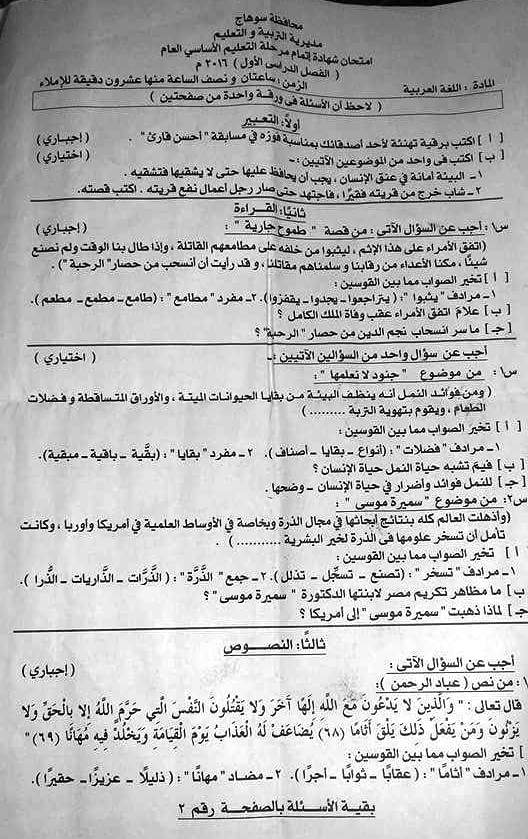 محافظة سوهاج
مديرية التربية و التعليم
امتحان شهادة إتمام مرحلة التعليم الأساسي العام
( الفصل الدراسى الأول ) ٢٠١٦ م
المادة : اللغة العربية الزمن: ساعتان و نصف الساعة منها عشرون دقيقة للإملاء
( لاحظ أن الأسئلة فى ورقة واحدة من صفحتين )
أولاً: التعبير
[ أ ] اكتب برقية تهنئة لأحد أصدقائك بمناسبة فوزه في مسابقة " أحسن قارئ " . ( إجباري )
[ ب ] اكتب فى واحد من الموضوعين الآتيين :- ( اختياري )
١- البيئة أمانة في عنق الإنسان ، يجب أن يحافظ عليها حتى لا يشقيها فتشقيه .
٢- شاب خرج من قريته فقيرًا ، فاجتهد حتى صار رجل أعمال نفع قريته . اكتب قصته .
ثانيًا: القراءة
س١: أجب عن السؤال الآتى : من قصة " طموح جارية " : ( إجباري )
(اتفق الأمراء على هذا الإثم ، ليثبوا من خلفه على مطامعهم القاتلة ، وإذا طال بنا الوقت ولم نصنع
شيئًا ، مكنا الأعداء من رقابنا و سلمناهم مقاتلنا ، و قد رأيت أن أنسحب من حصار "الرحبة ") .
[ أ ] تخير الصواب مما بين القوسين :
١- مرادف " يثبوا " : ( يتراجعوا - يجدوا - يقفزوا). ٢- مفرد " مطامع " : (طامع - مطمع - مطعم) .
[ ب ] علامَ اتفق الأمراء عقب وفاة الملك الكامل ؟
[ جـ ] ما سر انسحاب نجم الدين من حصار "الرحبة" ؟
أجب عن سؤال واحد من السؤالين الآتيين :- ( اختياري )
س١: من موضوع " جنود لا نعلمها " :
( ومن فوائد النمل أنه ينظف البيئة من بقايا الحيوانات الميتة ، والأوراق المتساقطة و فضلات
الطعام ، ويقوم بتهوية التربة .........)
[ أ ] تخير الصواب مما بين القوسين :
١- مرادف " فضلات " : (أنواع - بقايا - أصناف). ٢- مفرد " بقايا " : (بقَّية - باقية - مبقية).
[ ب ] فيمَ تشبه حياة النمل حياة الإنسان ؟
[ جـ ] للنمل فوائد وأضرار في حياة الإنسان - وضحها .
س٢: من موضوع " سميرة موسى " :
(وأذهلت العالم كله بنتائج أبحاثها في مجال الذرة وبخاصة في الأوساط العلمية في أمريكا وأوربا ، وكانت
تأمل أن تسخر علومها فى الذرة لخير البشرية .........) .
أ ] تخير الصواب مما بين القوسين :
١- مرادف " تسخر " : (تصنع - تسجَّل - تذلل). ٢- جمع " الذَّرَّة " : (الذَّرَّات - الذَّاريات - الذُّرا ).
ب ] ما مظاهر تكريم مصر لابنتها الدكتورة " سميرة موسى " ؟
جـ ] لماذا ذهبت " سميرة موسى " إلى أمريكا ؟
ثالثًا: النصوص
أجب عن السؤال الآتى : ( إجباري )
١: من نص ( عباد الرحمن ) :
قال تعالى : " وَالَّذِينَ لَا يَدْعُونَ مَعَ اللَّهِ إِلَهًا آخَرَ وَلَا يَقْتُلُونَ النَّفْسَ الَّتِي حَرَّمَ اللَّهُ إِلا بِالْحَقِّ وَلَا
يَزْنُونَ وَمَنْ يَفْعَلْ ذَلِكَ يَلْقَ أَثَامًا (٦٨) يُضَاعَفْ لَهُ الْعَذَابُ يَوْمَ الْقِيَامَةِ وَيَخْلُدْ فِيهِ مُهَانًا (٦٩) "
] تخير الصواب مما بين القوسين :
١- مرادف " أثامًا " : (عقابًا - ثوابًا - أجرًا). ٢- مضاد " مهانًا " : (ذليلًا - عزيزًا - حقيرًا ).
بقية الأسئلة بالصفحة رقم ٢